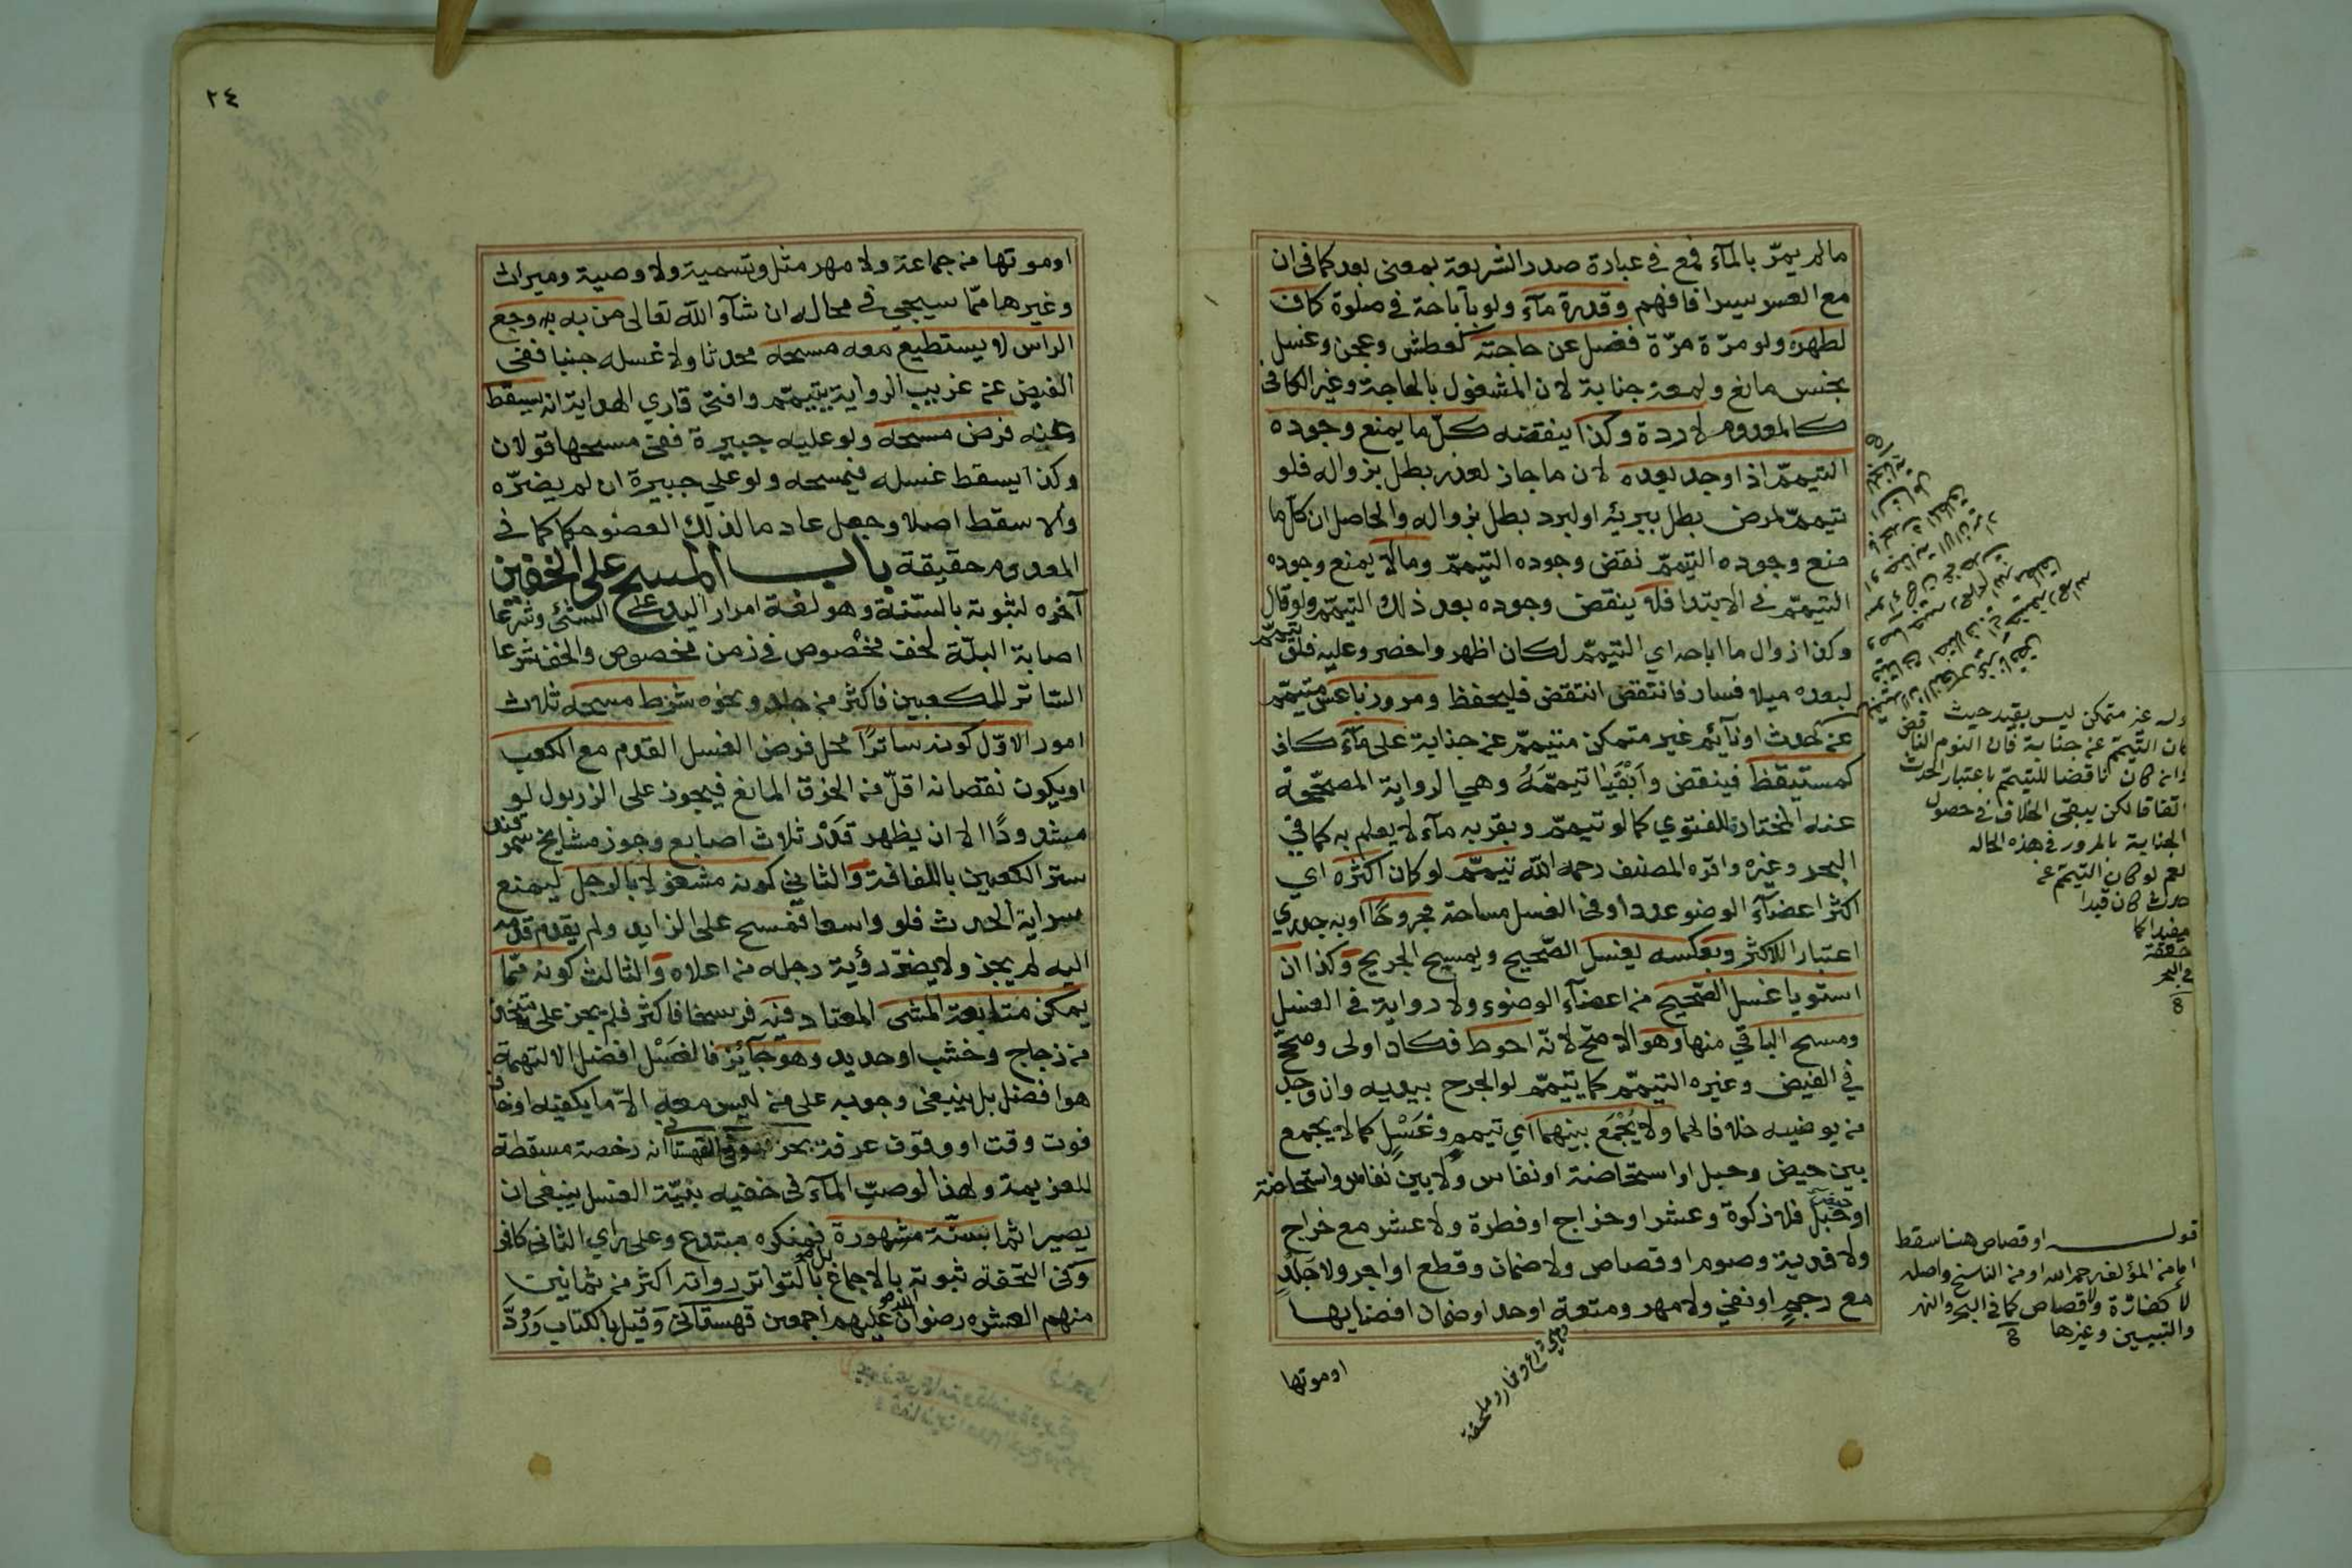 مالم يمرّ بالمآء فمع في عبارة صدر الشريعة بمعنى بعد كما في ان
مع العسر يسرا فافهم وقدرة مآء ولو باباحة في صلوة كاف
لطهره ولو مرّة مرّة فضل عن حاجته كعطش وعجن وغسل
نجس مانع ولمعة جنابة لان المشغول بالحاجة وغير الكافى
كالمعدوم لا ردة وكذا ينقضه كلّ ما يمنع وجوده
التيمم اذا وجد بعده لان ما جاز لعذر بطل بزواله فلو
تيمم لمرض بطل ببرئه او لبرد بطل بزواله والحاصل ان كلّ ما
منع وجوده التيمّم نقض وجوده التيمّم ومالا يمنع وجوده
التيمّم في الابتدا فلا ينقض وجوده بعد ذلك التيمّم ولو قال
وكذا زوال ما اباحه اي التيمّم لكان اظهر واخصر وعليه فلو تيمّم
لبعده ميلا فسار فانتقض انتقض فليحفظ ومرور ناعس متيمّم
عن حدث او نآئم غير متمكن متيمّم عن جنابة على مآء كاف
كمستيقظ فينقض وأبْقَيَا تيمّمَهُ وهي الرواية المصحّحة
عنه المختارة للفتوي كما لو تيمّم وبقربه مآء لا يعلم به كما في
البحر وغيره واقره المصنف رحمه الله تيمّم لو كان اكثره اي
اكثر اعضآء الوضوء عددا وفي الغسل مساحة مجروحًا او به جدري
اعتبارا للاكثر وبعكسه يغسل الصّحيح ويمسح الجريح وكذا ان
استويا غسل الصّحيح من اعضآء الوضوء ولا رواية في الغسل
ومسح الباقي منها وهو الاصح لانّه احوط فكان اولى وصحّح
في الفيض وغيره التيمّم كما يتيمّم لو الجرح بيديه وان وجد
من يوضيه خلافا لهما ولا يُجْمَع بينهما اي تيمم وغَسْلٍ كما لا يجمع
بين حيض وحبل او استحاضة او نفاس ولا بين نفاس واستحاضة
او حبل فلا زكوة وعشر او خراج او فطرة ولا عشر مع خراج
ولا فدية وصوم او قصاص ولا ضمان وقطع او اجر ولا جَلْدٍ
مع رجمٍ او نفي ولا مهر ومتعة او حد او ضمان افضايها
او موتها
وله غير متمكن ليس بقيد حيث
كان التيمم عن جنابة فان النوم الناقض
وان كان ناقضا للتيمم باعتبار الحدث
اتفاقا لكن يبقى الخلاف في حصول
الجنابة بالمرور في هذه الحاله
نعم لو كان التيمم عن
حدث كان قيدا
مفيدا كما
حققه
في البحر
قوله او قصاص هنا سقط
اما من المؤلف رحمه الله او من الناسخ واصله
لا كفارة ولا قصاص كما في البحر والنهر
والتبيين وغيرها
٢٤
او موتها من جماعة ولا مهر مثل وتسمية ولا وصية وميراث
وغيرها ممّا سيجي في محاله ان شآء الله تعالى من به وجع
الراس لا يستطيع معه مسحه محدثا ولا غسله جنبا ففي
الفيض عن غريب الرواية يتيمّم وافتى قاري الهداية انه يسقط
عنه فرض مسحه ولو عليه جبيرة ففي مسحها قولان
وكذا يسقط غسله فيمسحه ولو على جبيرة ان لم يضرّه
والا سقط اصلا وجعل عادما لذلك العضو حكما كما في
المعدوم حقيقة باب المسح على الخفين
آخره لثبوته بالسّنة وهو لغة امرار اليد على الشئ وشرعا
اصابة البلّة لخف مخصوص في زمن مخصوص والخف شرعا
السّاتر للكعبين فاكثر من جلد ونحوه شرط مسحه ثلاث
امور الاوّل كونه ساترًا محل فرض الغسل القدم مع الكعب
او يكون نقصانه اقلّ من الخرق المانع فيجوز على الزربول لو
مشدودًا الا ان يظهر قَدْرَ ثلاث اصابع وجوز مشايخ سمرقند
ستر الكعبين باللفافة والثاني كونه مشغولا بالرجل ليمنع
سراية الحدث فلو واسعا فمسح على الزايد ولم يقدم قدمه
اليه لم يجز ولا يضرّ رؤية رجله من اعلاه والثالث كونه ممّا
يمكن متابعة المشى المعتاد فيه فرسخا فاكثر فلم يجز على متخذ
من زجاج وخشب او حديد وهو جآئز فالغَسْل افضل الا لتهمة
هو افضل بل ينبغى وجوبه على من ليس معه الاّ ما يكفيه او خاف
فوت وقت او وقوف عرفة بحر وفي القهستا انه رخصة مسقطة
للعزيمة ولهذا لو صبّ المآء في خفيه بنيّة الغسل ينبغى ان
يصير اثما بسنّة مشهورة فمنكره مبتدع وعلى راي الثانى كافر
وفى التحفة ثبوته بالاجماع بل بالتواتر رواته اكثر من ثمانين
منهم العشره رضوان الله عليهم اجمعين قهستانى وقيل بالكتاب وَرُدَّ